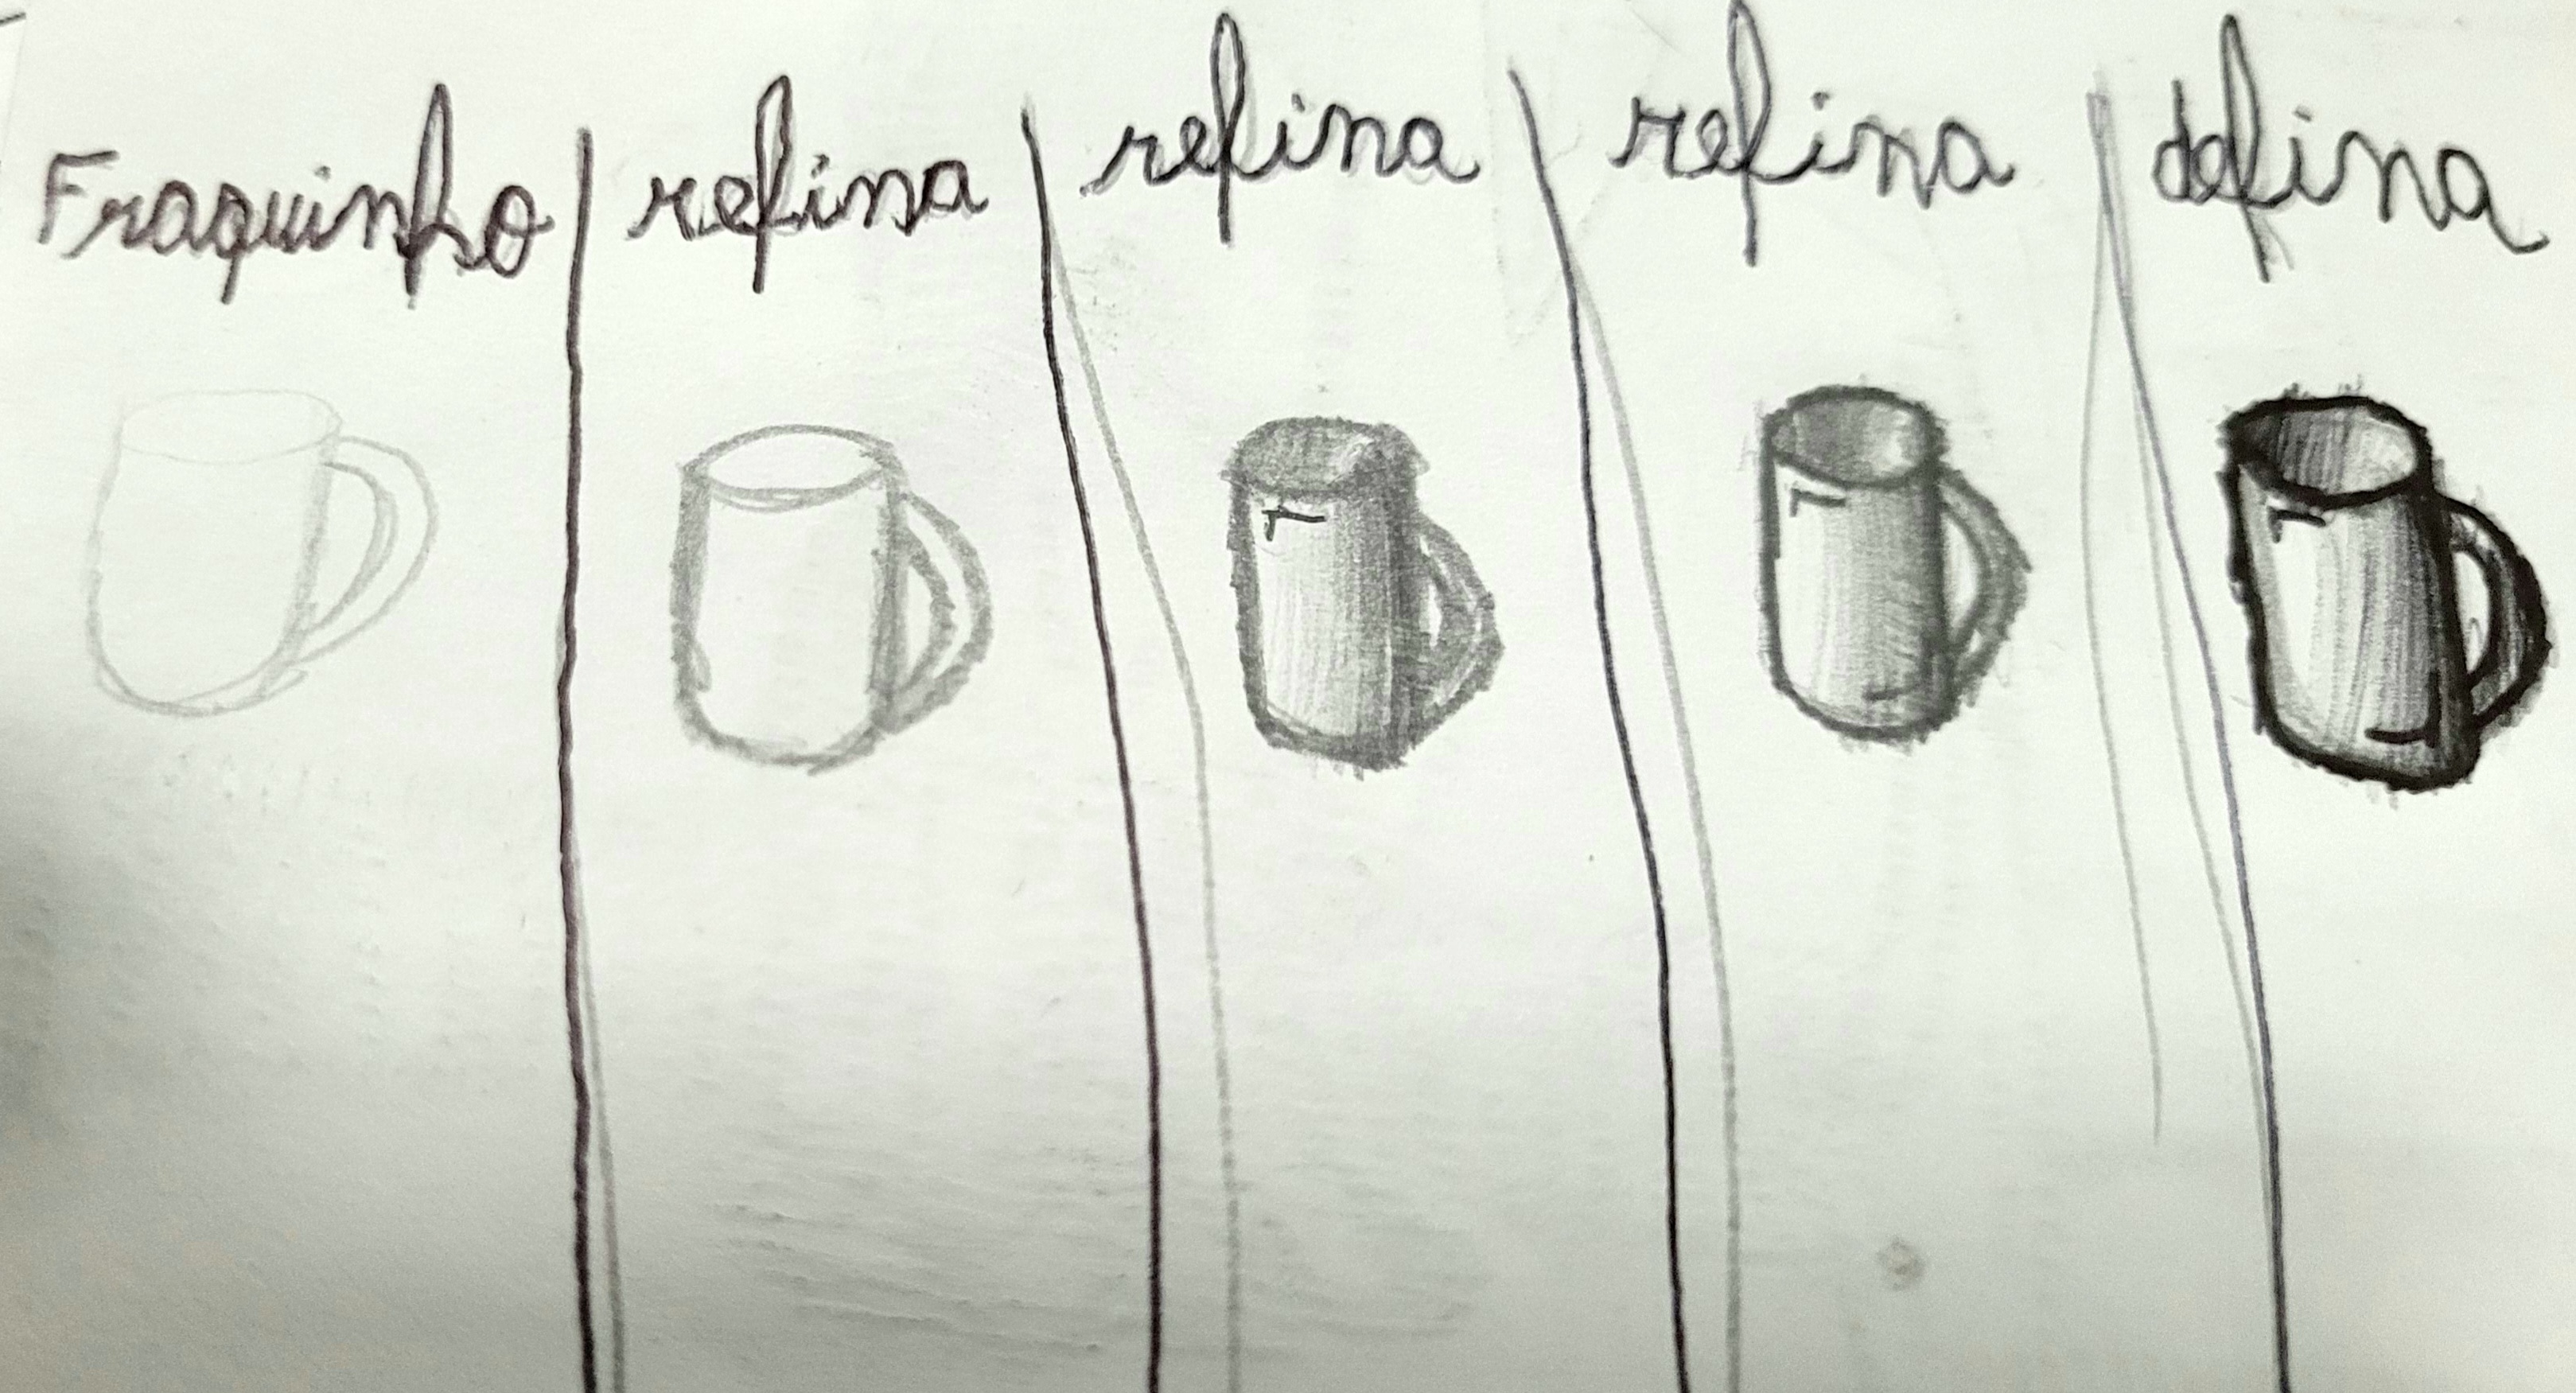 Fraquinho
refina
refina
refina
defina